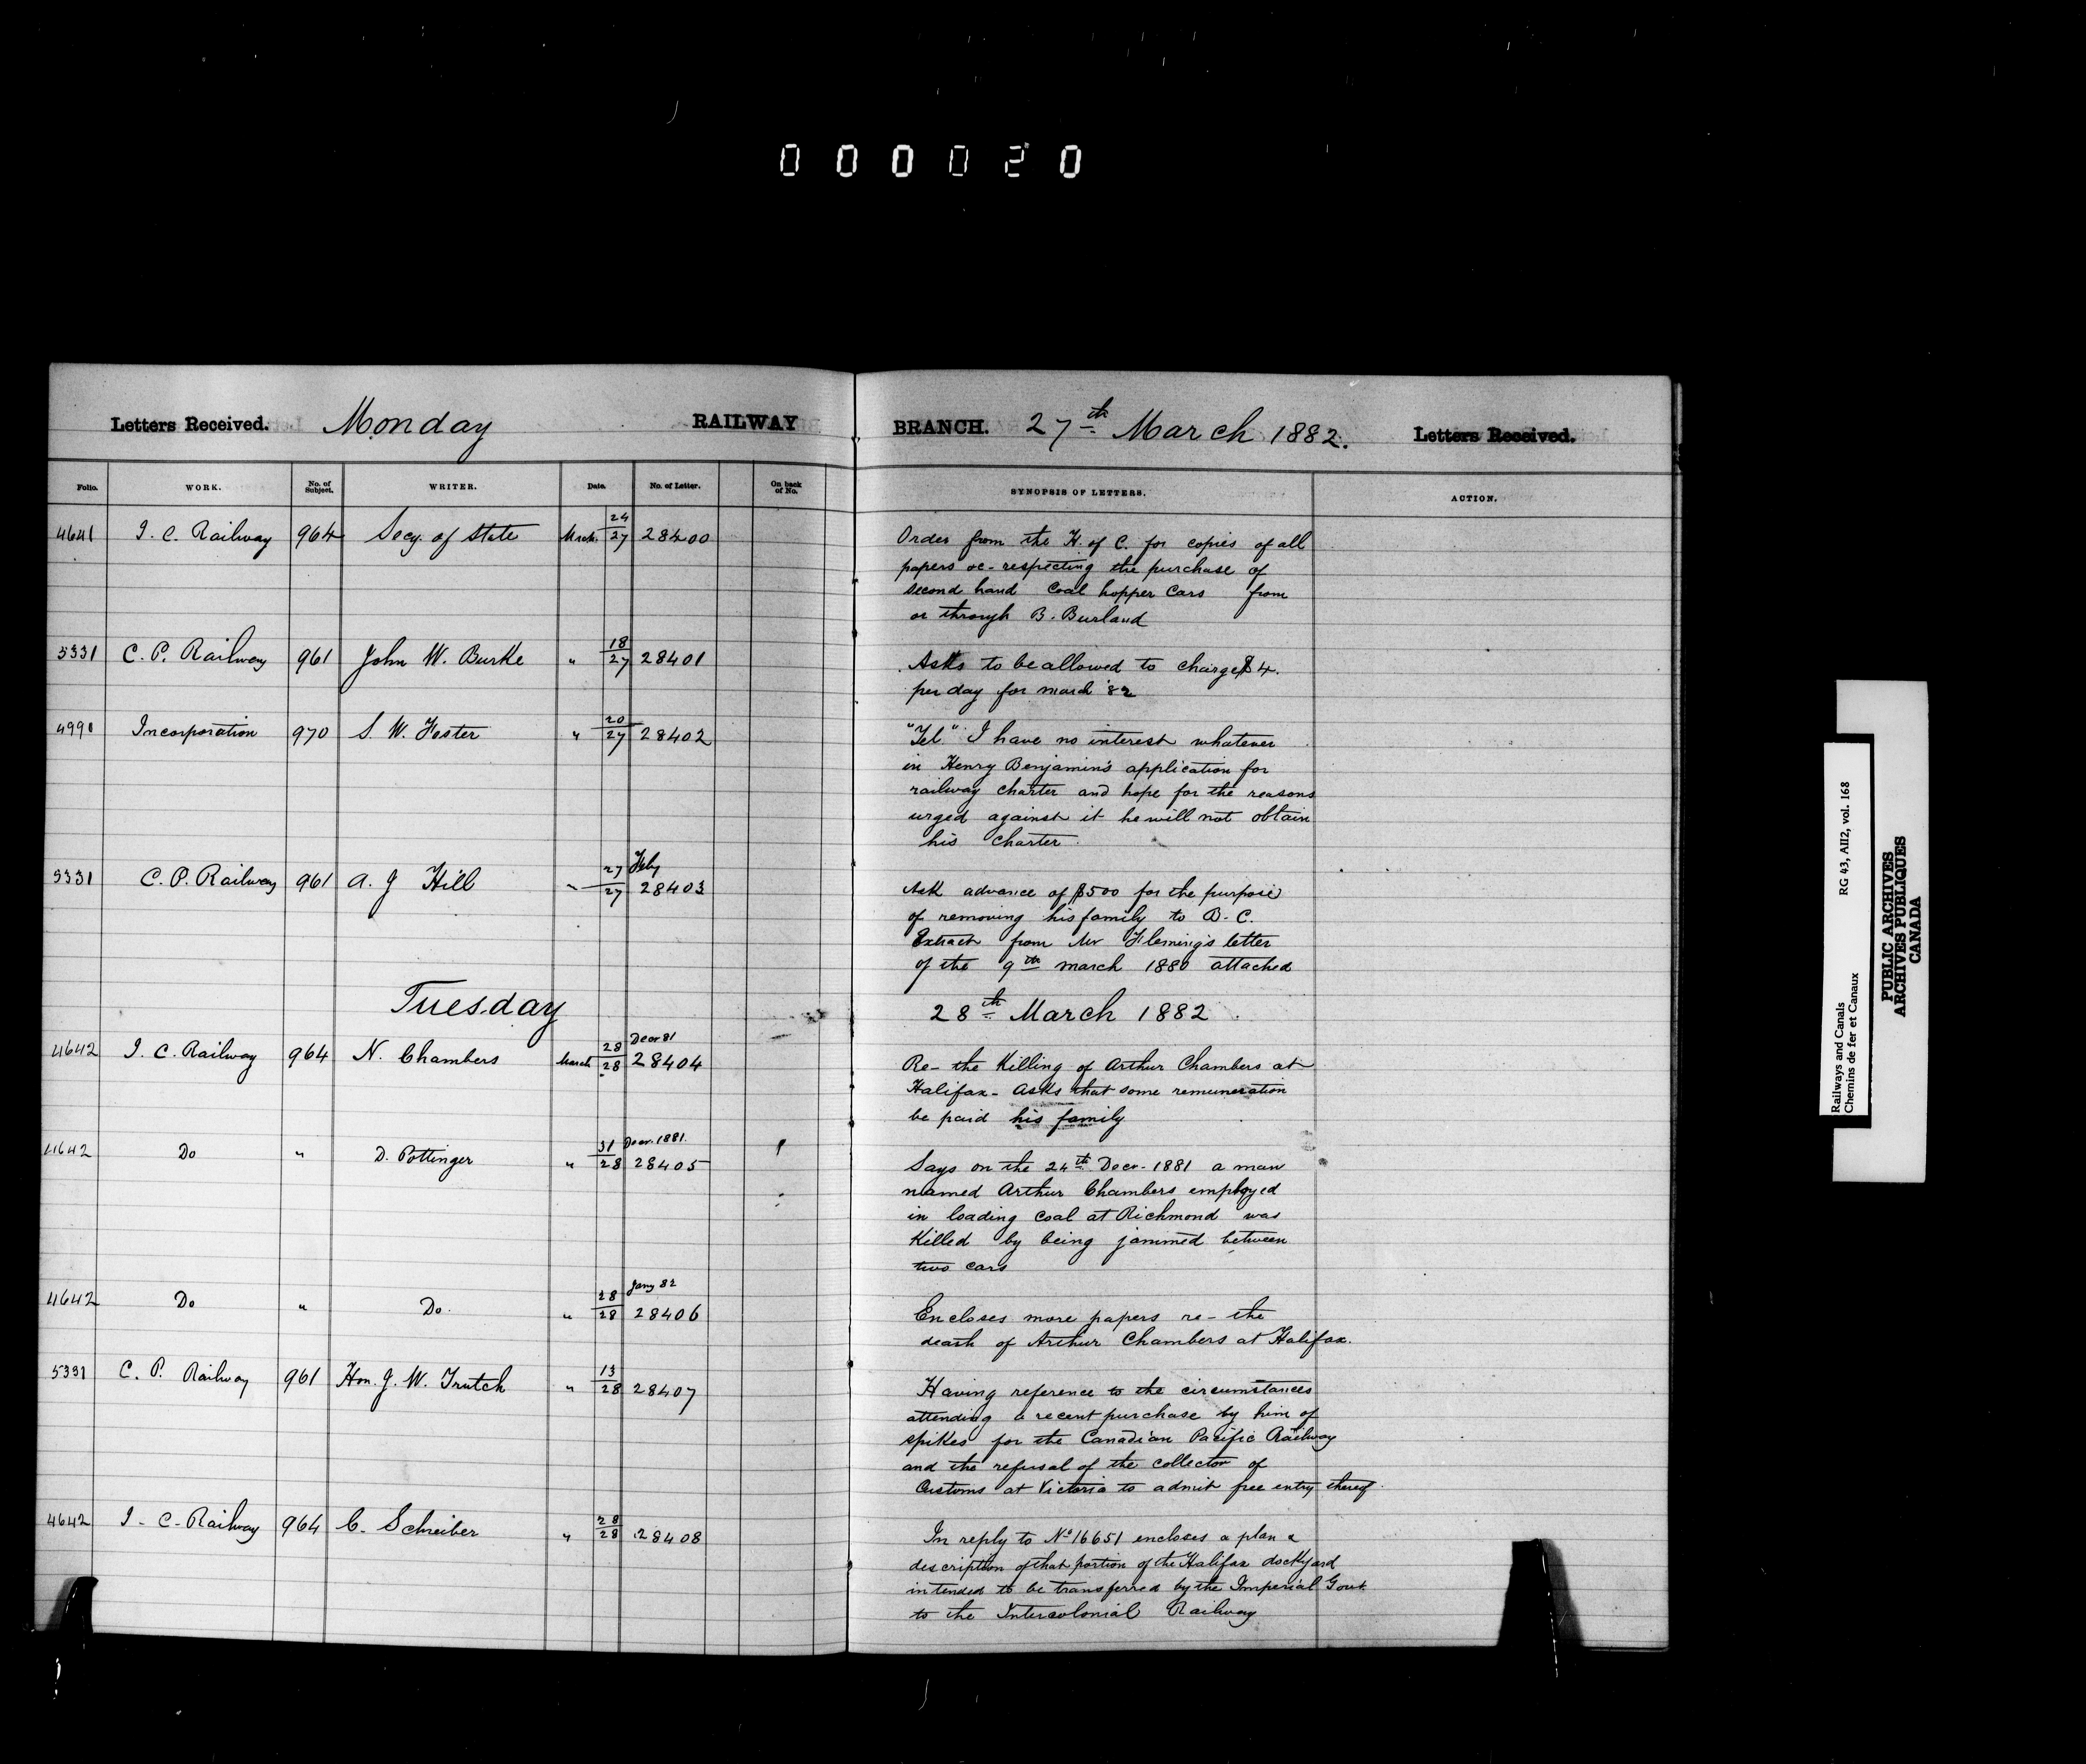 000020
Letters Received. Monday RAILWAY BRANCH. 27th March 1882. Letters Received.
Folio. WORK. No. of Subject. WRITER. Date. No. of Letter. On back of No. SYNOPSIS OF LETTERS. ACTION.
4641 I. C. Railway 964 Secy. of State March 24/27 28400
Order from the H. of C. for copies of all
papers &c - respecting the purchase of
second hand Coal hopper Cars from
or through B. Burland
5331 C. P. Railway 961 John W. Burke " 18/27 28401
Asks to be allowed to charge $4.
per day for march '82
4991 Incorporation 970 S. W. Foster " 20/27 28402
"Tel." I have no interest whatever
in Henry Benjamin's application for
railway charter and hope for the reasons
urged against it he will not obtain
his charter
5331 C. P. Railway 961 A. J Hill " 27 Feby/27 28403
Ask advance of $500 for the purpose
of removing his family to B. C.
Extract from Mr Fleming's letter
of the 9th march 1880 attached
Tuesday 28th March 1882
4642 I. C. Railway 964 N. Chambers March 28 Decr 81/28 28404
Re - the Killing of Arthur Chambers at
Halifax - asks that some remuneration
be paid his family
4642 Do " D. Pottinger " 31 Decr. 1881./28 28405
Says on the 24th Decr - 1881 a man
named Arthur Chambers employed
in loading Coal at Richmond was
Killed by being jammed between
two cars
4642 Do " Do. " 28 Jany 82/28 28406
Encloses more papers re - the
death of Arthur Chambers at Halifax.
5331 C. P. Railway 961 Hon. J. W. Trutch " 13/28 28407
Having reference to the circumstances
attending a recent purchase by him of
spikes for the Canadian Pacific Railway
and the refusal of the collector of
Customs at Victoria to admit free entry thereof.
4642 I - C - Railway 964 C. Schreiber " 28/28 28408
In reply to No 16651 encloses a plan &
description of that portion of the Halifax dockyard
intended to be transferred by the Imperial Govt.
to the Intercolonial Railway
Railways and Canals RG 43, AII2, vol. 168
Chemins de fer et Canaux
PUBLIC ARCHIVES
ARCHIVES PUBLIQUES
CANADA